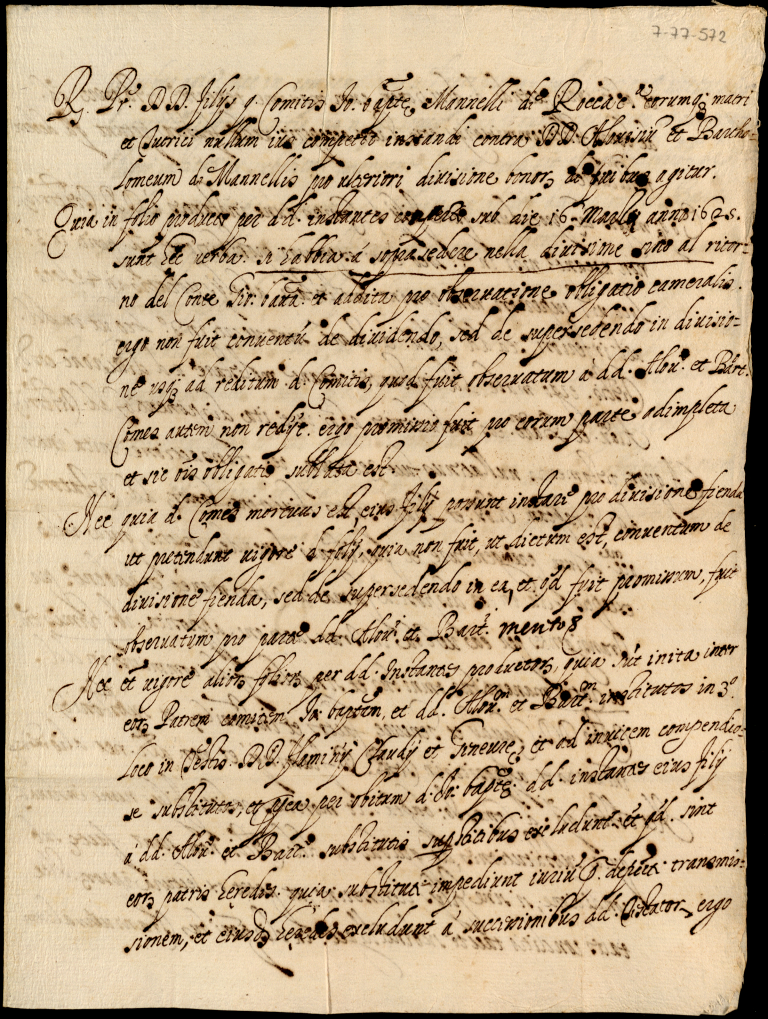 7-77-572
R. Pr. DD. filijs q. Comitis Jo: bapte Mannelli de Rocca eorumq; matri
et tutrici nullum ius competit instandi contra DD. Aloisiu et Bartho-
lomeum de Mannellis pro ulteriori divisione bonor de quibus agitur.
Quia in folio producto per dd. instantes sub die 16 Martij anno 1625.
sunt hec verba. si habbia à soprasedere nella divisione sino al ritor-
no del Conte Gio: batta. et addita pro observatione obligatio cameralis.
ergo non fuit conventu de dividendo, sed de supersedendo in divisio-
ne usq; ad reditum d. Comitis, quod fuit observatum à dd. Alou. et Bart.
Comes autem non redijt. ergo promissio fuit pro eorum parte adimpleta
et sic ois obligatio sublata est
Nec quia d. Comes mortuus est eius filij possunt instare pro divisione fienda
ut pretendunt vigore d. folij, quia non fuit, ut dictum est, conventum de
divisione fienda, sed de supersedendo in ea, et qd fuit promissum, fuit
observatum pro parte dd. Alou. et Bart.
Nec et vigore alior folior per dd. Instantes productor, quia sut inita inter
eor Patrem comitem Jo: baptam, et dd. Alou. et Bart. institutos in 3.º
loco in Testis DD. Flaminij Claudij et Gineure, et ad invicem compendio-
se substitutos, et postea per obitum d. Jo: bapte dd. instantes eius filij
à dd. Alou. et Bart. substitutis excludunt et qd. sint
eor patris heredes. quia substituti impediunt iuriu transmis-
sionem, et eiusd heredes excludunt à successionibus dd. ergo